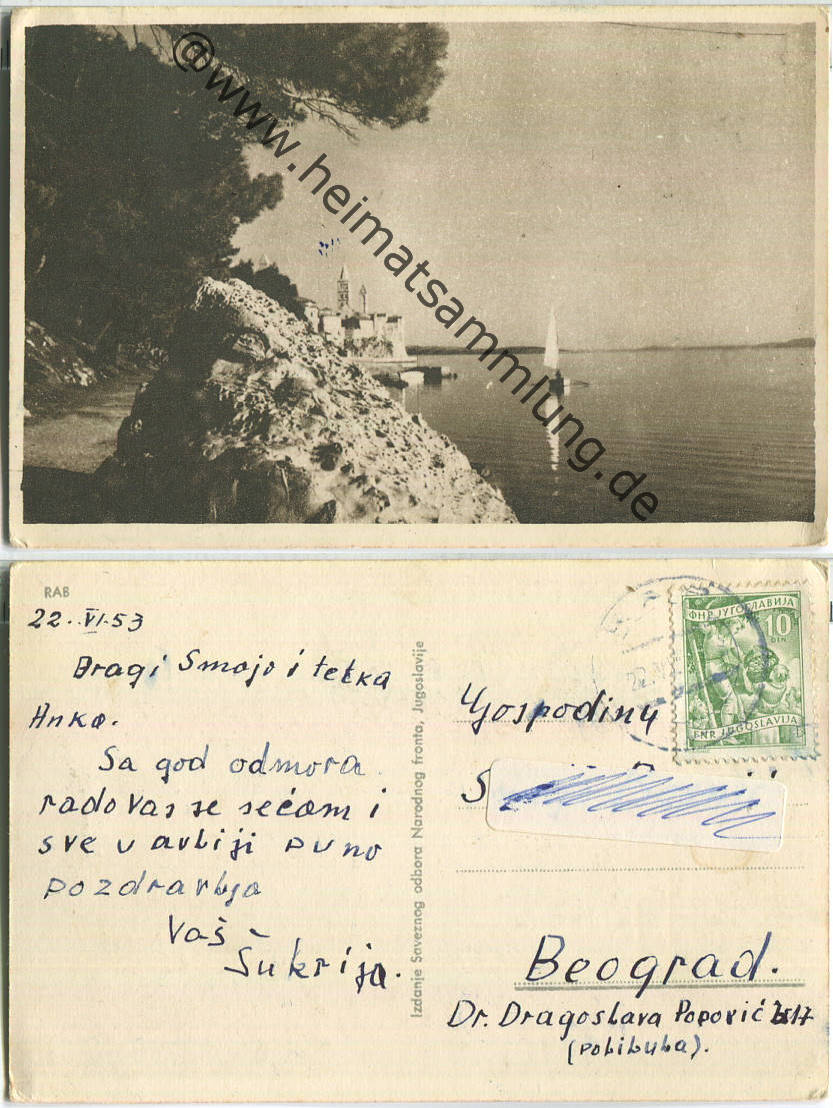 @www.heimatsammlung.de
RAB
22. VI.53
Dragi Smajo i tetka
Anka.
Sa god odmora
rado vas se sećam i
sve u avliji puno
pozdravlja
Vaš
Šukrija.
Izdanje Saveznog odbora Narodnog fronta, Jugoslavije
ФНР ЈУГОСЛАВИЈА
10
DIN
FNR JUGOSLAVIJA
Gospodiny
S
Beograd.
Dr. Dragoslava Popović